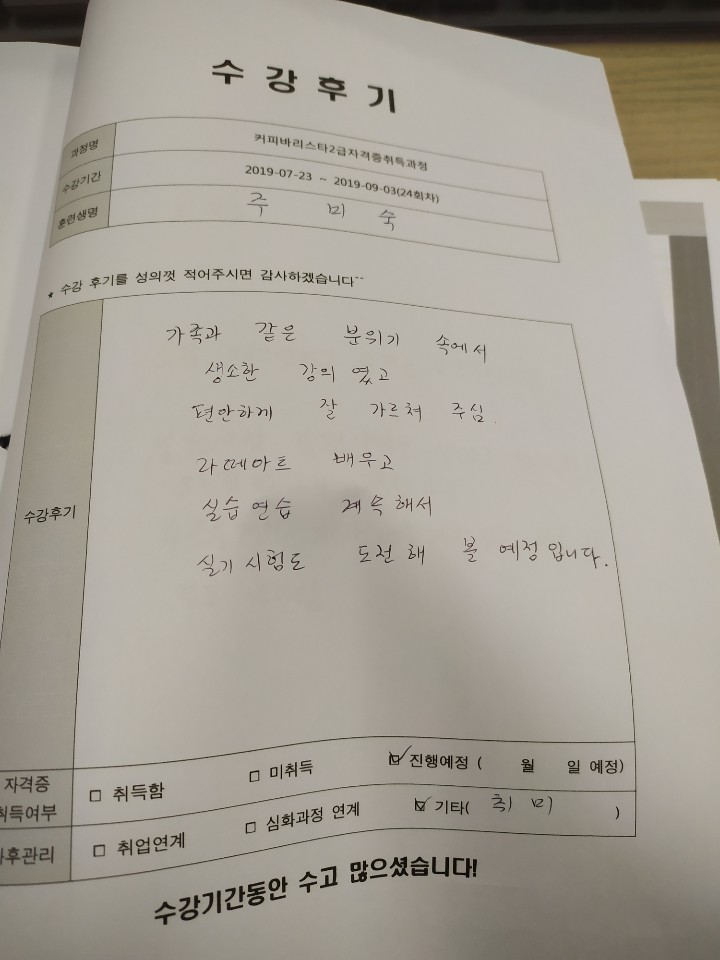 수강후기
과정명 커피바리스타2급자격증취득과정
수강기간 2019-07-23 ~ 2019-09-03(24회차)
훈련생명 주 미 숙
★ 수강 후기를 성의껏 적어주시면 감사하겠습니다~~
가족과 같은 분위기 속에서
생소한 강의 였고
편안하게 잘 가르쳐 주심.
수강후기
라떼아트 배우고
실습 연습 계속 해서
실기 시험도 도전 해 볼 예정입니다.
자격증
취득여부
□ 취득함 □ 미취득 ☑ 진행예정 ( 월 일 예정)
후관리 □ 취업연계 □ 심화과정 연계 ☑ 기타( 취미 )
수강기간동안 수고 많으셨습니다!